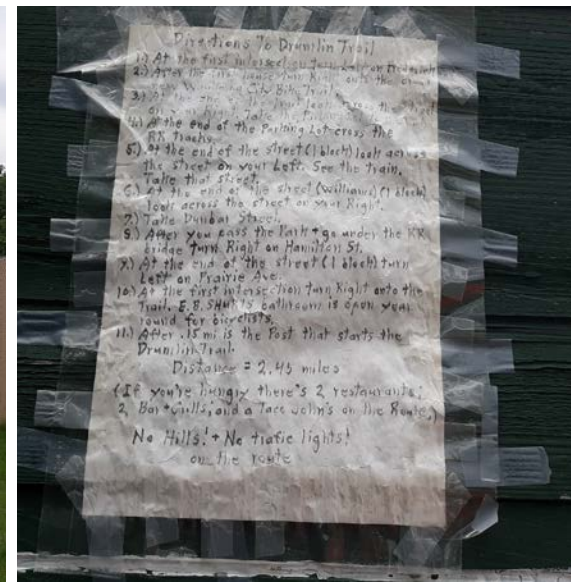 Directions to Drumlin Trail
1.) At the first intersection turn Left on
2.) After the first house turn Right onto the
City Bike Trail
3.) the end of the trail look across the street
on your Right. Take the Parking Lot
4.) At the end of the Parking Lot cross the
RR tracks.
5.) At the end of the street (1 block) look across
the street on your Left. See the train.
Take that street.
6.) At the end of the street (Williams) (1 block)
look across the street on your Right.
7.) Take Dunbar Street.
8.) After you pass the Park + go under the RR
bridge turn Right on Hamilton St.
9.) At the end of the street (1 block) turn
Left on Prairie Ave.
10.) At the first intersection turn Right onto the
Trail. E.B. bathroom is open year
round for bicyclists.
11.) After .15 mi is the Post that starts the
Drumlin Trail.
Distance = 2.45 miles
(If you're hungry there's 2 restaurants;
2, Bar + Grills; and a Taco John's on the Route.)
No Hills! + No trafic lights!
on the route